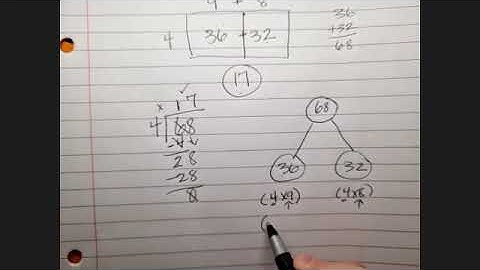 9 + 8
4 36 + 32
36
+32
68
17
× 17
4 68
-4
28
-28
0
68
36 32
(4×9) (4×8)
(